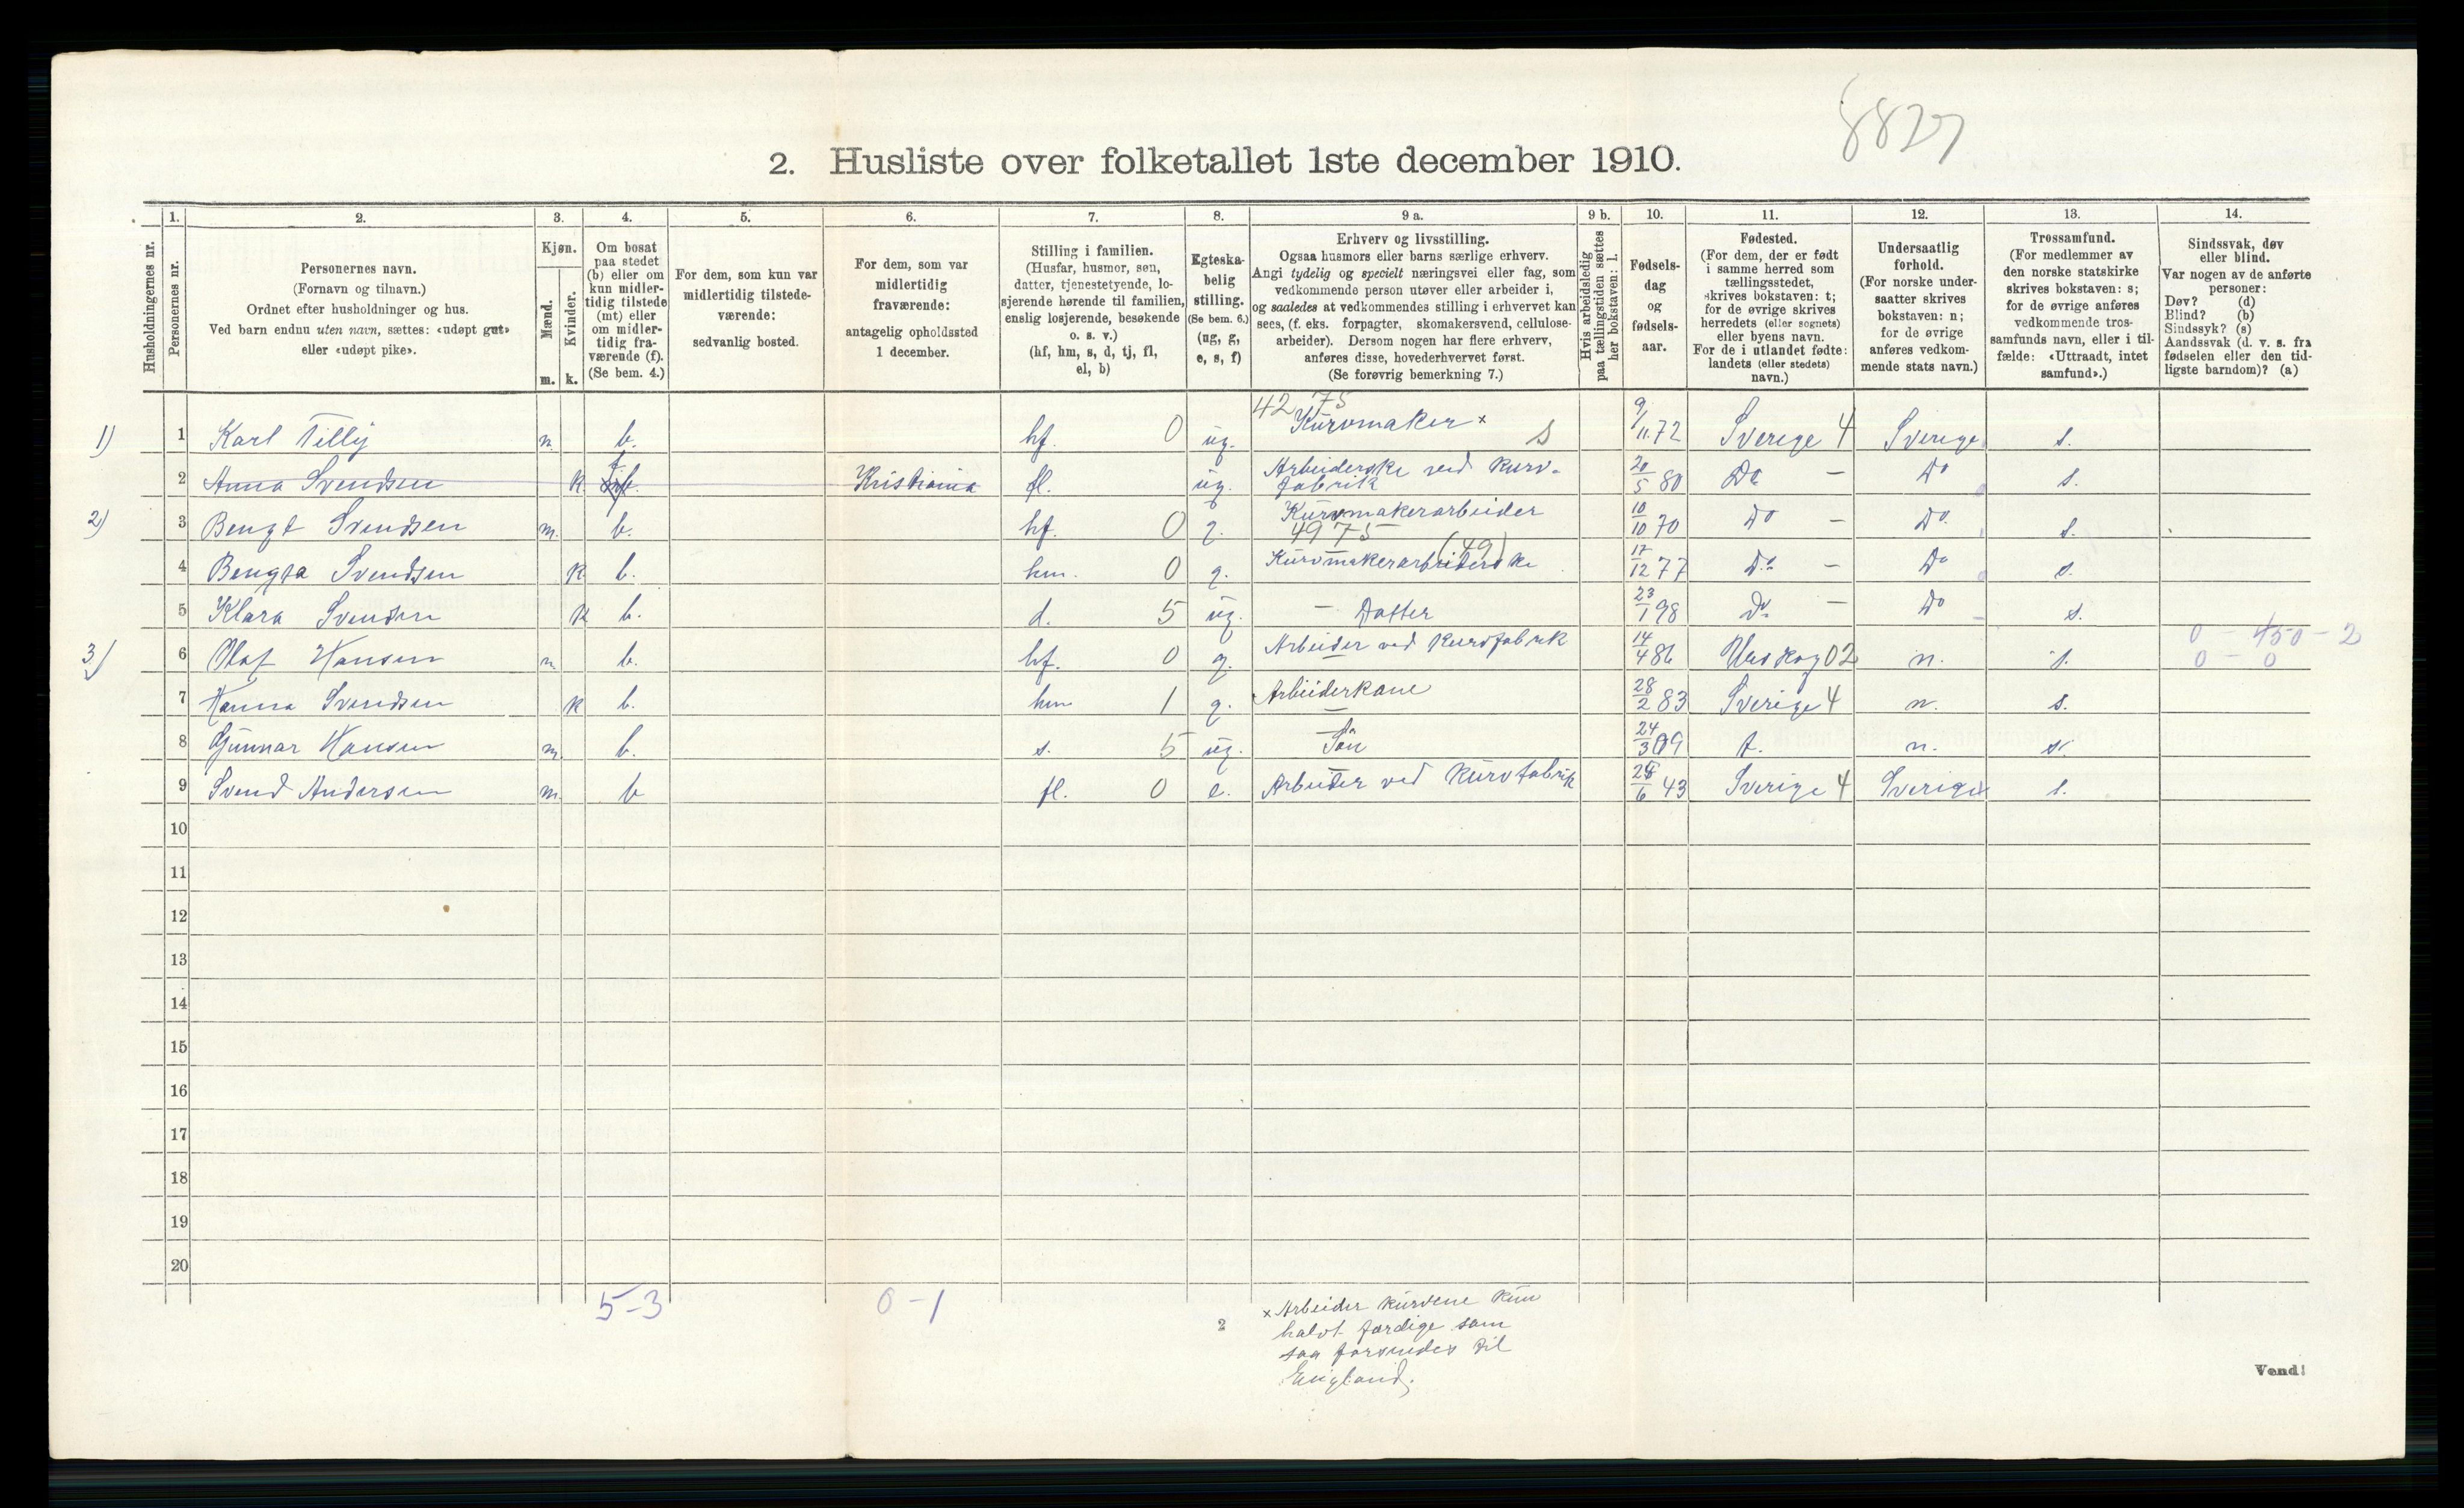 8827
2. Husliste over folketallet 1ste december 1910.
Husholdningernes nr.
1.
Personernes nr.
2.
Personernes navn.
(Fornavn og tilnavn.)
Ordnet efter husholdninger og hus.
Ved barn endnu uten navn, sættes: «udøpt gut»
eller «udøpt pike».
3.
Kjøn.
Mænd.
Kvinder.
m. k.
4.
Om bosat
paa stedet
(b) eller om
kun midler-
tidig tilstede
(mt) eller
om midler-
tidig fra-
værende (f).
(Se bem. 4.)
5.
For dem, som kun var
midlertidig tilstede-
værende:
sedvanlig bosted.
6.
For dem, som var
midlertidig
fraværende:
antagelig opholdssted
1 december.
7.
Stilling i familien.
(Husfar, husmor, søn,
datter, tjenestetyende, lo-
sjerende hørende til familien,
enslig losjerende, besøkende
o. s. v.)
(hf, hm, s, d, tj, fl,
el, b)
8.
Egteska-
belig
stilling.
(Se bem. 6.)
(ug, g,
e, s, f)
9 a.
Erhverv og livsstilling.
Ogsaa husmors eller barns særlige erhverv.
Angi tydelig og specielt næringsvei eller fag, som
vedkommende person utøver eller arbeider i,
og saaledes at vedkommendes stilling i erhvervet kan
sees, (f. eks. forpagter, skomakersvend, cellulose-
arbeider). Dersom nogen har flere erhverv,
anføres disse, hovederhvervet først.
(Se forøvrig bemerkning 7.)
9 b.
Hvis arbeidsledig
paa tællingstiden sættes
her bokstaven: l.
10.
Fødsels-
dag
og
fødsels-
aar.
11.
Fødested.
(For dem, der er født
i samme herred som
tællingsstedet,
skrives bokstaven: t;
for de øvrige skrives
herredets (eller sognets)
eller byens navn.
For de i utlandet fødte:
landets (eller stedets)
navn.)
12.
Undersaatlig
forhold.
(For norske under-
saatter skrives
bokstaven: n;
for de øvrige
anføres vedkom-
mende stats navn.)
13.
Trossamfund.
(For medlemmer av
den norske statskirke
skrives bokstaven: s;
for de øvrige anføres
vedkommende tros-
samfunds navn, eller i til-
fælde: «Uttraadt, intet
samfund».)
14.
Sindssvak, døv
eller blind.
Var nogen av de anførte
personer:
Døv? (d)
Blind? (b)
Sindssyk? (s)
Aandssvak (d. v. s. fra
fødselen eller den tid-
ligste barndom)? (a)
42 75
1) 1 Karl Tilly m. b. hf. 0 ug. Kurvmaker × s 9/11 72 Sverige 4 Sverige s.
2 Anna Svendsen k f Kristiania fl. ug. Arbeiderske ved kurv-
fabrik 20/5 80 Do – Do s.
2) 3 Bengt Svendsen m. b. hf. 0 g. Kurvmakerarbeider
4975 10/10 70 Do – Do s.
4 Bengta Svendsen k b. hm. 0 g. Kurvmakerarbeiderske (49) 17/12 77 Do – Do s.
5 Klara Svendsen k b. d. 5 ug. – Datter 23/1 98 Do – Do s.
3) 6 Olaf Hansen m b. hf. 0 g. Arbeider ved kurvfabrik 14/4 86 Urskog 02 n. s. 0 – 450 – 2
0 – 0
7 Hanna Svendsen k b. hm 1 g. Arbeiderkone 28/2 83 Sverige 4 n. s.
8 Gunnar Hansen m. b. s. 5 ug. Søn 24/3 09 t. n. s.
9 Svend Andersen m. b fl. 0 e. Arbeider ved kurvfabrik 28/6 43 Sverige 4 Sverige s.
10
11
12
13
14
15
16
17
18
19
20
5-3 0-1
× Arbeider kurvene kun
halvt færdige som
saa forsendes til
England.
2
Vend!